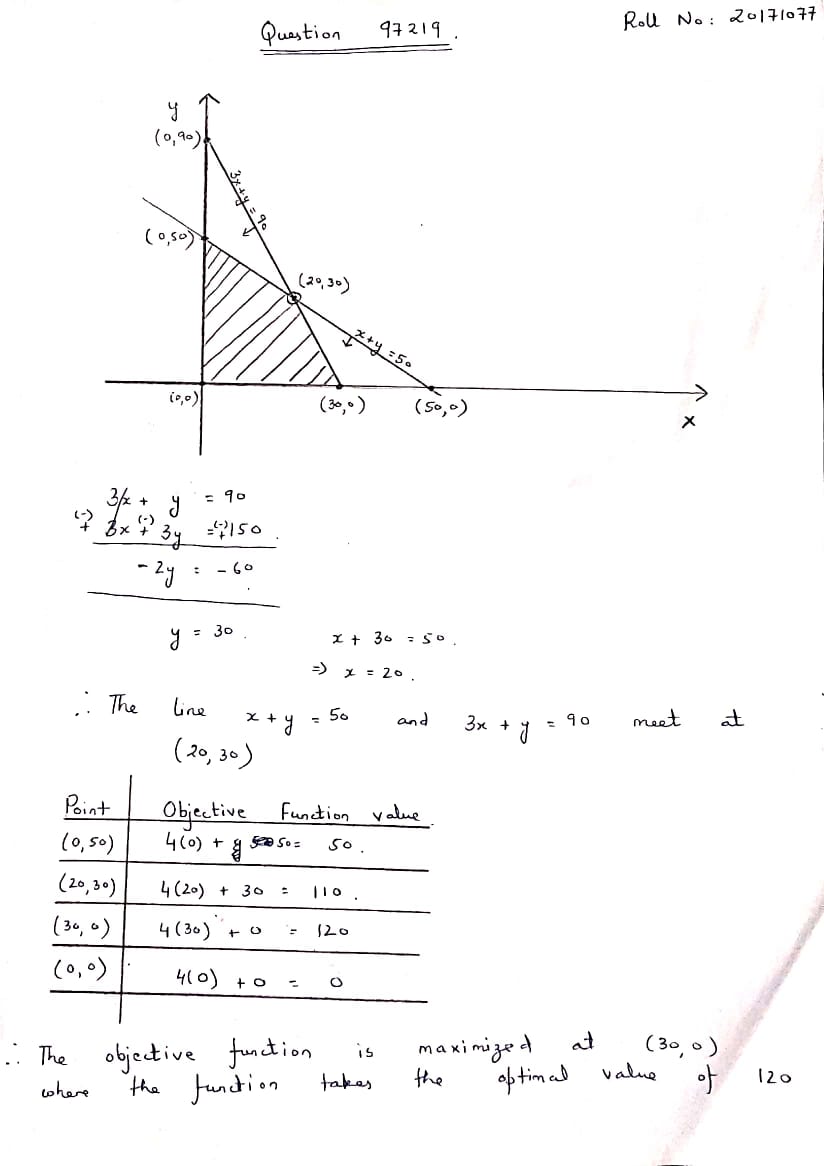 Question 97219.
Roll No: 20171077
y
(0,90)
3x+y=90
(0,50)
(20,30)
x+y=50
(0,0)
(30,0)
(50,0)
x
3x + y = 90
(-) + 3x (-) + 3y = (-) + 150
-2y = -60
y = 30.
x + 30 = 50.
=> x = 20.
∴ The line x + y = 50 and 3x + y = 90 meet at
(20, 30)
Point Objective Function value.
(0,50) 4(0) + 50 = 50.
(20,30) 4(20) + 30 = 110.
(30,0) 4(30) + 0 = 120
(0,0) 4(0) + 0 = 0
∴ The objective function is maximized at (30,0)
where the function takes the optimal value of 120